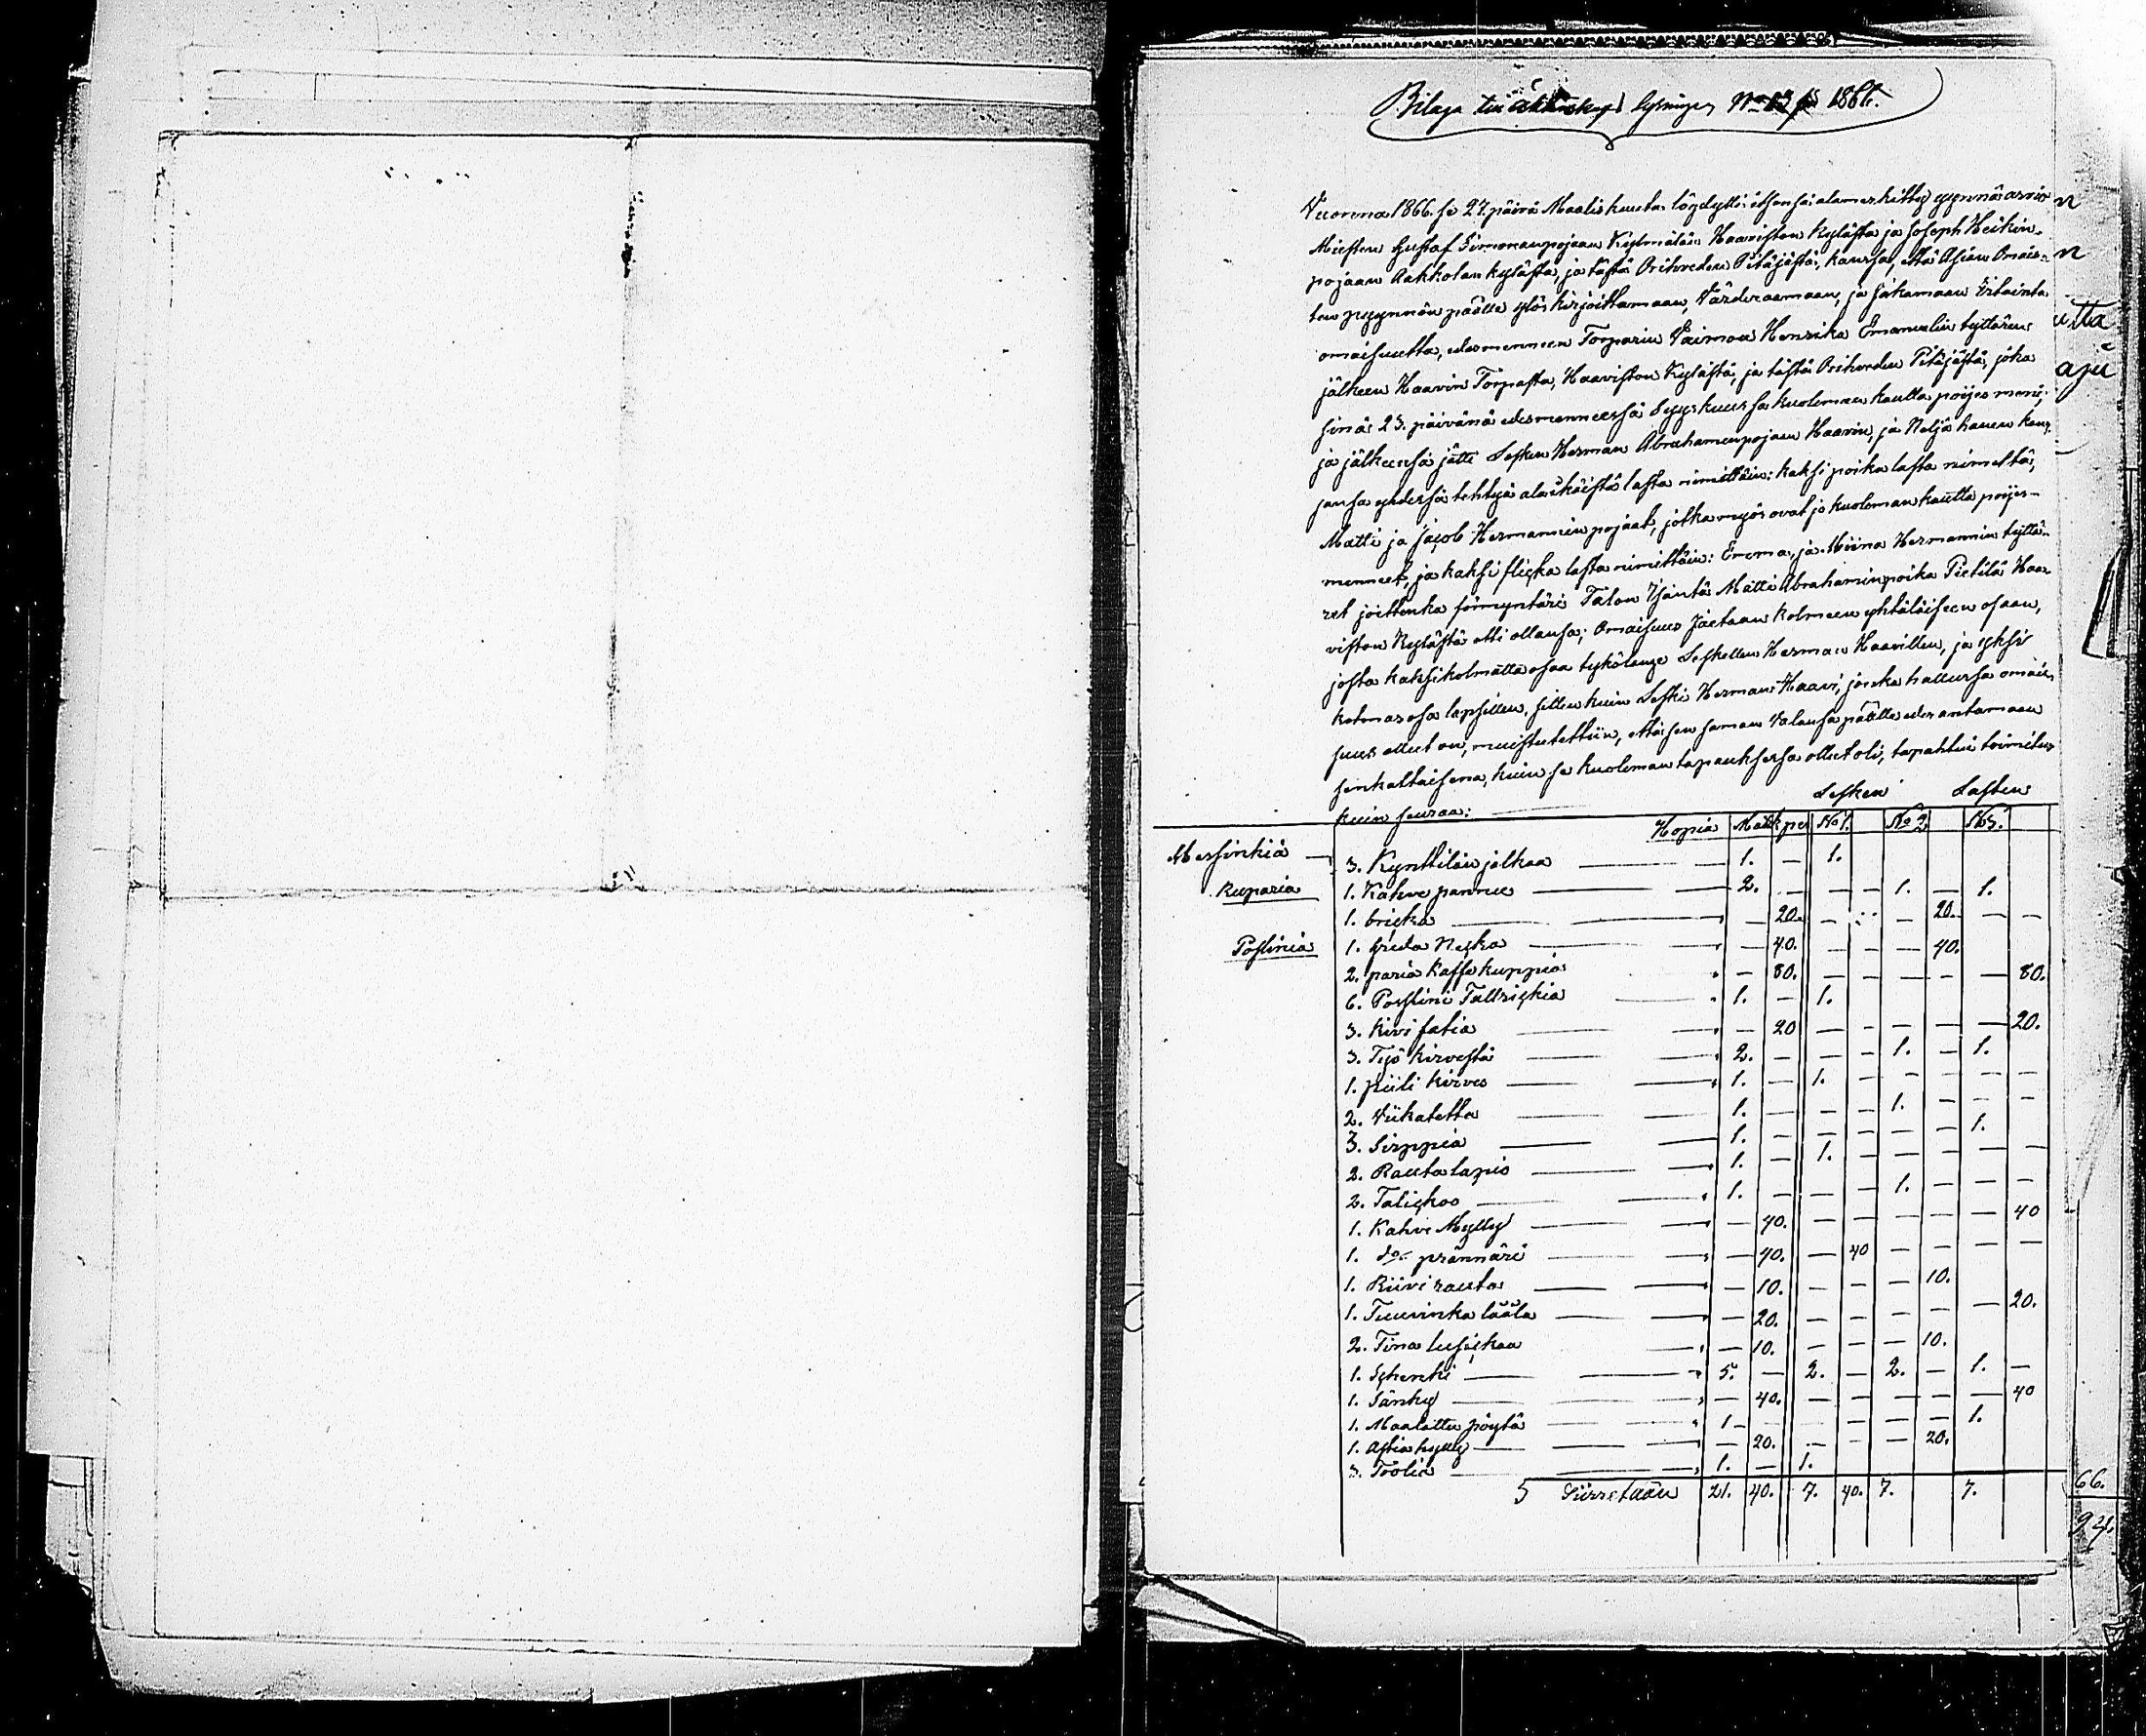 Bilaga till äktenskaps lysningen No 13 1866.
Vuonna 1866. se 27. päivä Maaliskuuta löydytti itsensä alamerkitty ynnä arvio
Miesten Gustaf Simonanpojan Kylmälän Haaviston Kylästä ja Joseph Heikin-
pojaan Aakkolan kylästä, ja tästä Oriveden Pitäjästä, kanssa, että Asian Omais-
ten pyynnön päälle ylöskirjoittamaan, Värderaamaan, ja jakamaan Irtainta
omaisuutta, edesmenneen Torparin Vaimon Henrika Emanuelin tyttären
jälkeen Haavin Torpasta, Haaviston Kylästä, ja tästä Oriveden Pitäjästä, joka
sinä 23. päivänä edesmenneessä Syyskuussa kuoleman kautta poijes meni,
ja jälkeensä jätti Lesken Herman Abrahamenpojaan Haavin, ja Neljä hänen kans-
sansa yhdessä tehtyä alaikäistä lasta nimittäin: kaksi poika lasta nimeltä,
Matti ja Jacob Hermannin pojaat, jotka myös ovat jo kuoleman kautta poijes-
menneet, ja kaksi flicka lasta nimittäin: Emma, ja Miina Hermannin tyttä-
ret joittenka förmyntäri Talon Isäntä Matti Abrahaminpoika Pietilä Haa-
viston Kylästä otti ollansa; Omaisuus jaetaan kolmeen yhtäläiseen osaan,
josta kaksikolmatta osaa tykölange Leskellen Herman Haavillen, ja yksi
kolmas osa lapsillen, sillen kuin Leski Herman Haavi, jonka hallussa omai-
suus ollut on, muistutettiin, että sen saman valansa päälle edesantamaan
senkaltaisena, kuin se kuoleman tapauksessa ollut oli, tapahtui toimitus
kuin seuraa:
Lesken Lasten
Hopia Mark pe No 1. No 2. No 3.
Messinkiä 3. Kynttilän jalkaa 1. — 1.
Kuparia 1. Kahve pannu 2. — — — 1. — 1.
1. bricka — 20. — — — 20. — —
Poslinia 1. Greda Necka — 40. — — — 40.
2. paria Kaffe kuppia — 80. — — — — — 80.
6. Poslini Tallrickia 1. — 1.
3. Kivi fatia — 20 — — — — — 20.
3. Työ kirvestä 2. — — — 1. — 1.
1. piili kirves 1. — 1. — — — — —
2. Viikatetta 1. — — — 1. — — —
3. Sirppiä 1. — — — — — 1.
2. Rauta lapio 1. — 1. — — — — —
2. Talickoo 1. — — — 1. — — —
1. Kahve Mylly — 40. — — — — — 40
1. do prännäri — 40. — 40 — — — —
1. Riivi rauta — 10. — — — 10.
1. Tuuvinka lääla — 20. — — — — — 20.
2. Tina lusickaa — 10. — — — 10.
1. Schenki 5. — 2. — 2. — 1. —
1. Sänky — 40. — — — — — 40
1. Maalattu pöytä 1 — — — — 1.
1. Astia hylly — 20. — — — 20.
3. Töölia 1. — 1.
Siirretään 21. 40. 7. 40. 7. 7.
n
n
utta
66.
94.